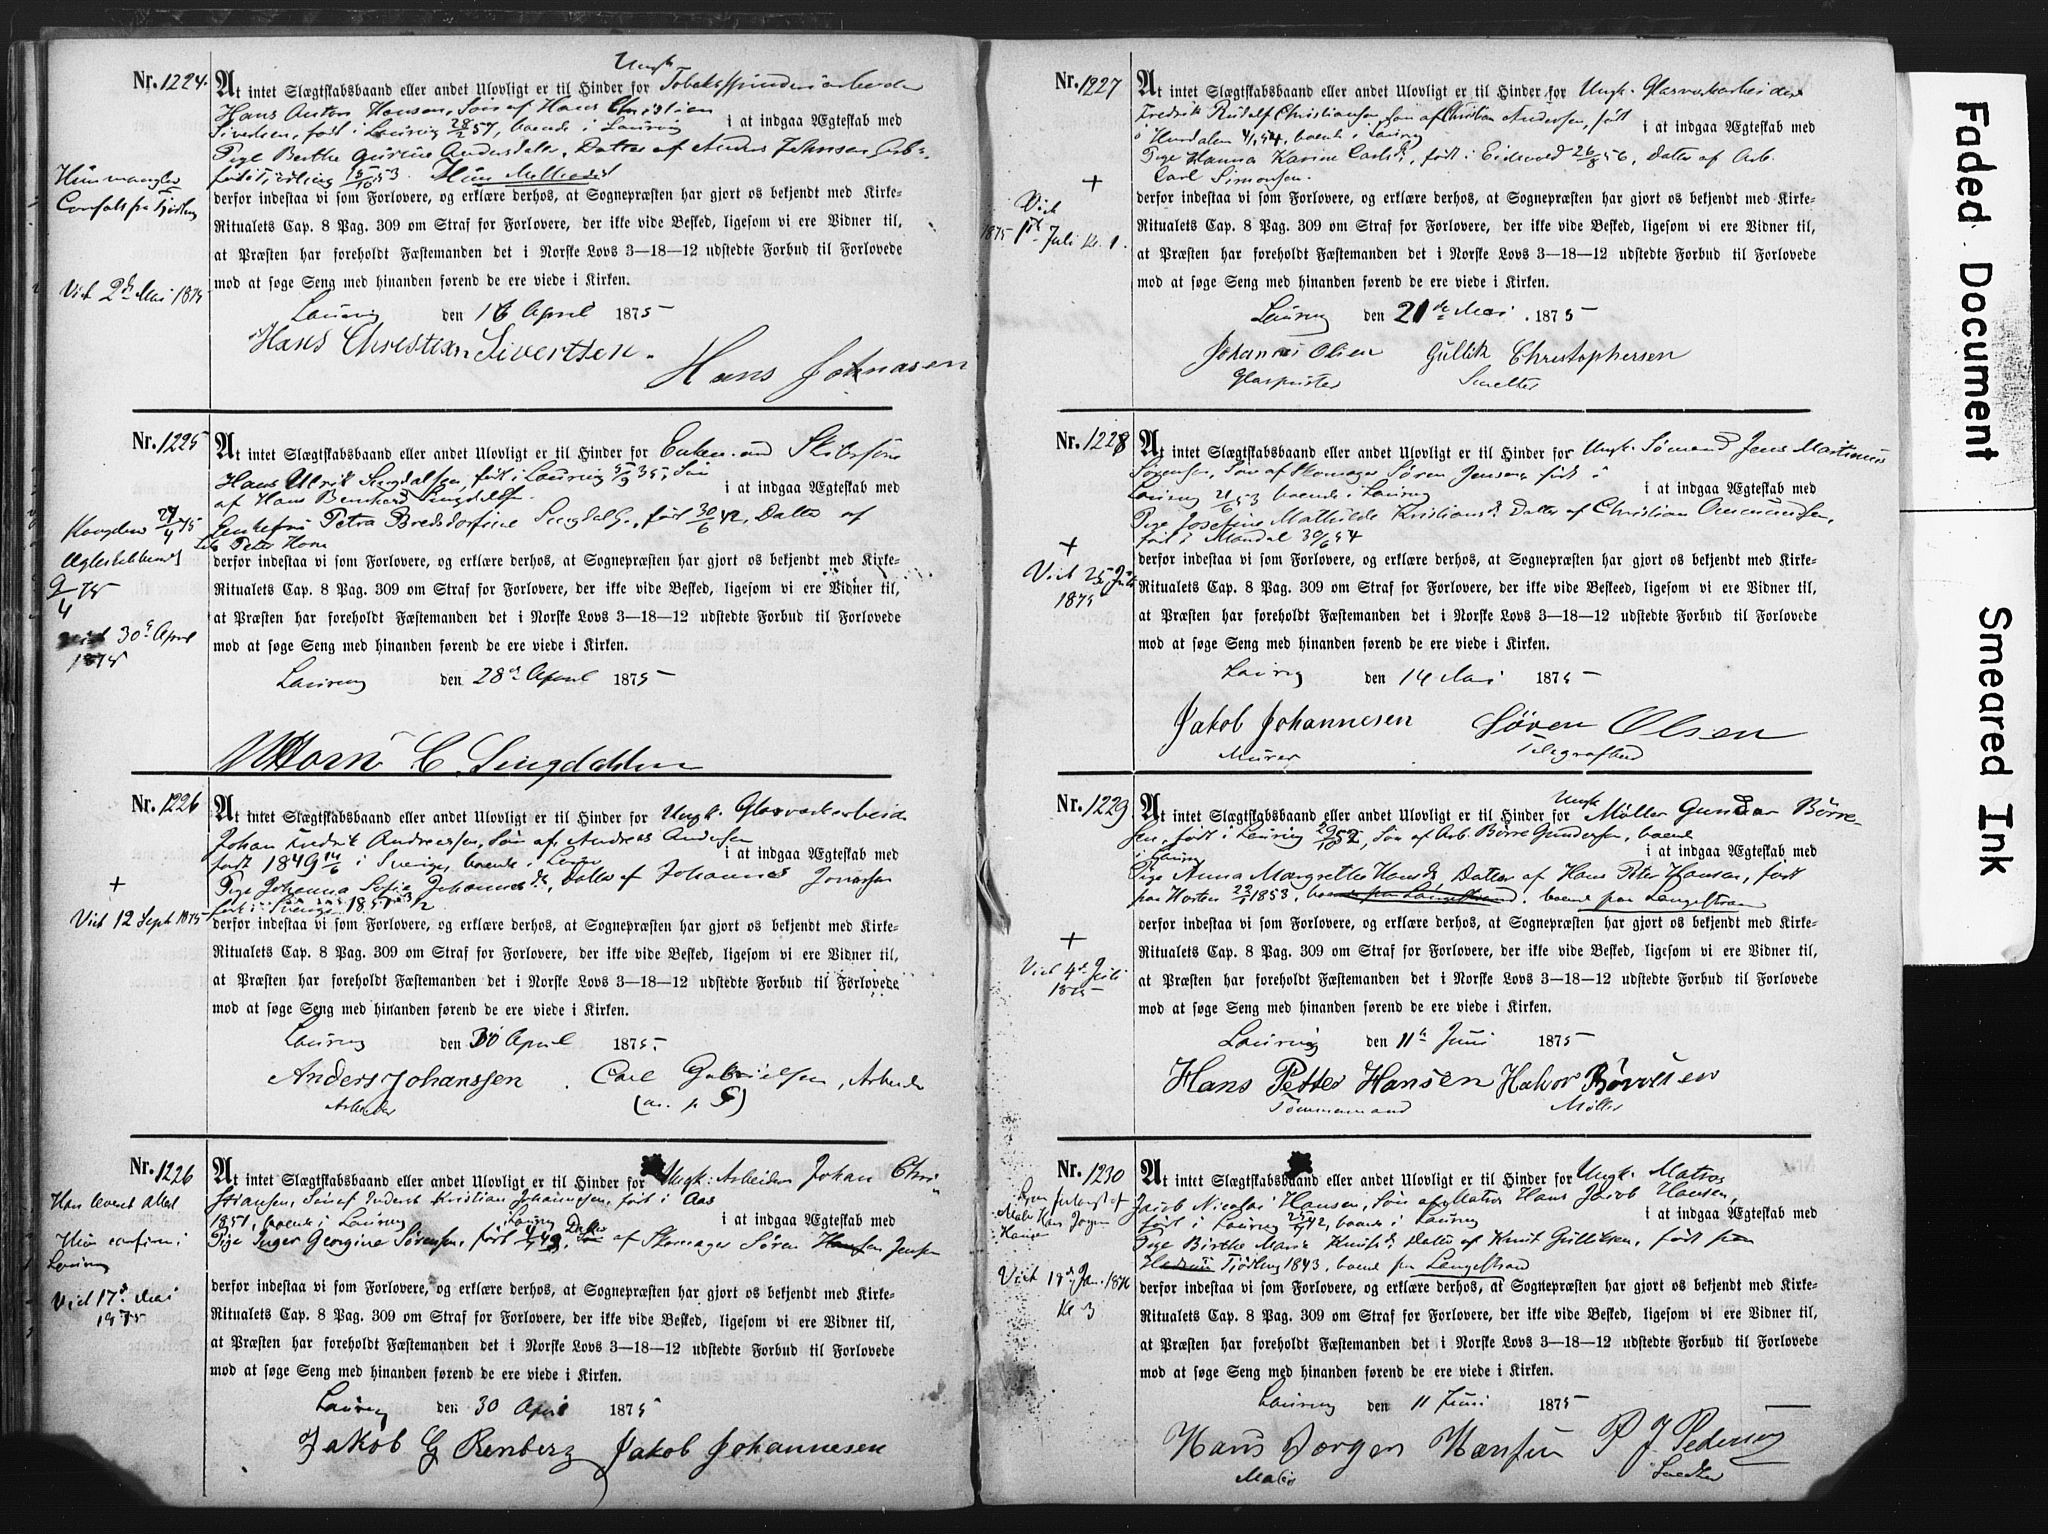 Nr. 1224.
Ungk.
At intet Slægtskabsbaand eller andet Ulovligt er til Hinder for Tobaksspinderiarbeider
Hans Anton Hansen, Søn af Hans Christian
Sivertsen, født i Laurvig 28/2 57, boende i Laurvig
i at indgaa Ægteskab med
Pige Berthe Gurine Andersdatter, Datter af Anders Johnsen, Arb.
født i Tjødling 15/10 53.
Hun mangler
Confatt. fra Tjødling
derfor indestaa vi som Forlovere, og erklære derhos, at Sognepræsten har gjort os bekjendt med Kirke-
Ritualets Cap. 8 Pag. 309 om Straf for Forlovere, der ikke vide Besked, ligesom vi ere Vidner til,
at Præsten har foreholdt Fæstemanden det i Norske Lovs 3—18—12 udstedte Forbud til Forlovede
mod at søge Seng med hinanden førend de ere viede i Kirken.
Viet 2d Mai 1875
Laurvig den 16 April 1875
Hans Christian Sivertsen.
Hans Johnasen
Nr. 1225
At intet Slægtskabsbaand eller andet Ulovligt er til Hinder for Enkem. og Skibsfører
Hans Ulrik Singdalsen, født i Laurvig 5/9 35, Søn
af Hans Bernhard Singdalsen.
i at indgaa Ægteskab med
Enkefru Petra Bredsdorfine født 30/6 42, Datter af
Peter Horn
derfor indestaa vi som Forlovere, og erklære derhos, at Sognepræsten har gjort os bekjendt med Kirke-
Ritualets Cap. 8 Pag. 309 om Straf for Forlovere, der ikke vide Besked, ligesom vi ere Vidner til,
at Præsten har foreholdt Fæstemanden det i Norske Lovs 3—18—12 udstedte Forbud til Forlovede
mod at søge Seng med hinanden førend de ere viede i Kirken.
9/4 75
Viet 30d April
1875
Laurvig den 28d April 1875
Horn C. Singdahlsen
Nr. 1226
At intet Slægtskabsbaand eller andet Ulovligt er til Hinder for Ungk. Glasværkarbeid.
Johan Andreassen, Søn af Andreas Andersen
født 1849 14/6 i Sverige, boende i Laurv
i at indgaa Ægteskab med
Pige Johanna Sofie Johannesd., Datter af Johannes Jonassen
født i Sverige 1851
derfor indestaa vi som Forlovere, og erklære derhos, at Sognepræsten har gjort os bekjendt med Kirke-
Ritualets Cap. 8 Pag. 309 om Straf for Forlovere, der ikke vide Besked, ligesom vi ere Vidner til,
at Præsten har foreholdt Fæstemanden det i Norske Lovs 3—18—12 udstedte Forbud til Forlovede
mod at søge Seng med hinanden førend de ere viede i Kirken.
+
Viet 12 Sept. 1875
Laurvig den 30 April 1875.
Anders Johanssen . Carl Gabrielsen, Arbeider
Arbeider (m. p. S)
Nr. 1226
At intet Slægtskabsbaand eller andet Ulovligt er til Hinder for Ungk: Arbeider Johan Chri-
stiansen, Søn af Kristian Johannesen, født i Aas
1851, boende i Laurvig
i at indgaa Ægteskab med
Pige Inger Georgine Sørensen, født Laurvig 49, Datter af Skomager Søren Jensen
Han leveret Attest
Hun confirm. i
Laurvig
Viet 17d Mai
1875
derfor indestaa vi som Forlovere, og erklære derhos, at Sognepræsten har gjort os bekjendt med Kirke-
Ritualets Cap. 8 Pag. 309 om Straf for Forlovere, der ikke vide Besked, ligesom vi ere Vidner til,
at Præsten har foreholdt Fæstemanden det i Norske Lovs 3—18—12 udstedte Forbud til Forlovede
mod at søge Seng med hinanden førend de ere viede i Kirken.
Laurvig den 30 April 1875
Jakob G Renberg Jakob Johannesen
Nr. 1227
At intet Slægtskabsbaand eller andet Ulovligt er til Hinder for Ungk. Glasværkarbeider
Fredrik Rudolf Christiansen, Søn af Christian Andersen, født
i Hurdalen 4/1 54, boende i Laurvig
i at indgaa Ægteskab med
Pige Hanna Karine Carlsd., født i Eidsvold 26/8 56, Datter af Arb.
Carl Simonsen.
derfor indestaa vi som Forlovere, og erklære derhos, at Sognepræsten har gjort os bekjendt med Kirke-
Ritualets Cap. 8 Pag. 309 om Straf for Forlovere, der ikke vide Besked, ligesom vi ere Vidner til,
at Præsten har foreholdt Fæstemanden det i Norske Lovs 3—18—12 udstedte Forbud til Forlovede
mod at søge Seng med hinanden førend de ere viede i Kirken.
+
Viet
1875 Juli Kl. 1.
Laurvig den 21de Mai 1875
Johannes Olsen Gullik Christophersen
Glaspuster Smelter
Nr. 1228
At intet Slægtskabsbaand eller andet Ulovligt er til Hinder for Ungk. Sømand Jens Martinius
Sørensen, Søn af Skomager Søren Jensen, født i
Laurvig 21/6 53 boende i Laurvig
i at indgaa Ægteskab med
Pige Josefine Mathilde Kristiansd. Datter af Christian Ommundsen,
født i Mandal 30/6 54
derfor indestaa vi som Forlovere, og erklære derhos, at Sognepræsten har gjort os bekjendt med Kirke-
Ritualets Cap. 8 Pag. 309 om Straf for Forlovere, der ikke vide Besked, ligesom vi ere Vidner til,
at Præsten har foreholdt Fæstemanden det i Norske Lovs 3—18—12 udstedte Forbud til Forlovede
mod at søge Seng med hinanden førend de ere viede i Kirken.
+
Viet 25 Juli
1875
Laurvig den 14 Mai 1875
Jakob Johannesen Søren Olsen
Murer Telegrafbud
Nr. 1229
Ungk
At intet Slægtskabsbaand eller andet Ulovligt er til Hinder for Møller Gunnar Børre-
sen, født i Laurvig 29/10 52, Søn af Arb. Børre Gundersen, boende
i Laurvig
i at indgaa Ægteskab med
Pige Anna Margrethe Hansd. Datter af Hans Peter Hansen, født
paa Horten 1853, boende paa Langestrand, boende paa Langestran
derfor indestaa vi som Forlovere, og erklære derhos, at Sognepræsten har gjort os bekjendt med Kirke-
Ritualets Cap. 8 Pag. 309 om Straf for Forlovere, der ikke vide Besked, ligesom vi ere Vidner til,
at Præsten har foreholdt Fæstemanden det i Norske Lovs 3—18—12 udstedte Forbud til Forlovede
mod at søge Seng med hinanden førend de ere viede i Kirken.
+
Viet 4d Juli
1875
Laurvig den 11te Juni 1875
Hans Petter Hansen Halvor Børresen
Tømmermand Møller
Nr. 1230
At intet Slægtskabsbaand eller andet Ulovligt er til Hinder for Ungk. Matros
Jacob Nicolai Hansen, Søn af Matros Hans Jacob Hansen,
født i Laurvig 42, boende i Laurvig
i at indgaa Ægteskab med
Pige Birthe Marie Knutsd. Datter af Knut Gulliksen, født paa
Tjødling 1843, boende paa Langestrand
Maler Hans Jørgen
Hansen
Viet 18d Jan. 1876
Kl 3
derfor indestaa vi som Forlovere, og erklære derhos, at Sognepræsten har gjort os bekjendt med Kirke-
Ritualets Cap. 8 Pag. 309 om Straf for Forlovere, der ikke vide Besked, ligesom vi ere Vidner til,
at Præsten har foreholdt Fæstemanden det i Norske Lovs 3—18—12 udstedte Forbud til Forlovede
mod at søge Seng med hinanden førend de ere viede i Kirken.
Laurvig den 11 Juni 1875
Hans Jørgen Hansen P J Pedersen
Maler Snedker
Faded Document
Smeared Ink